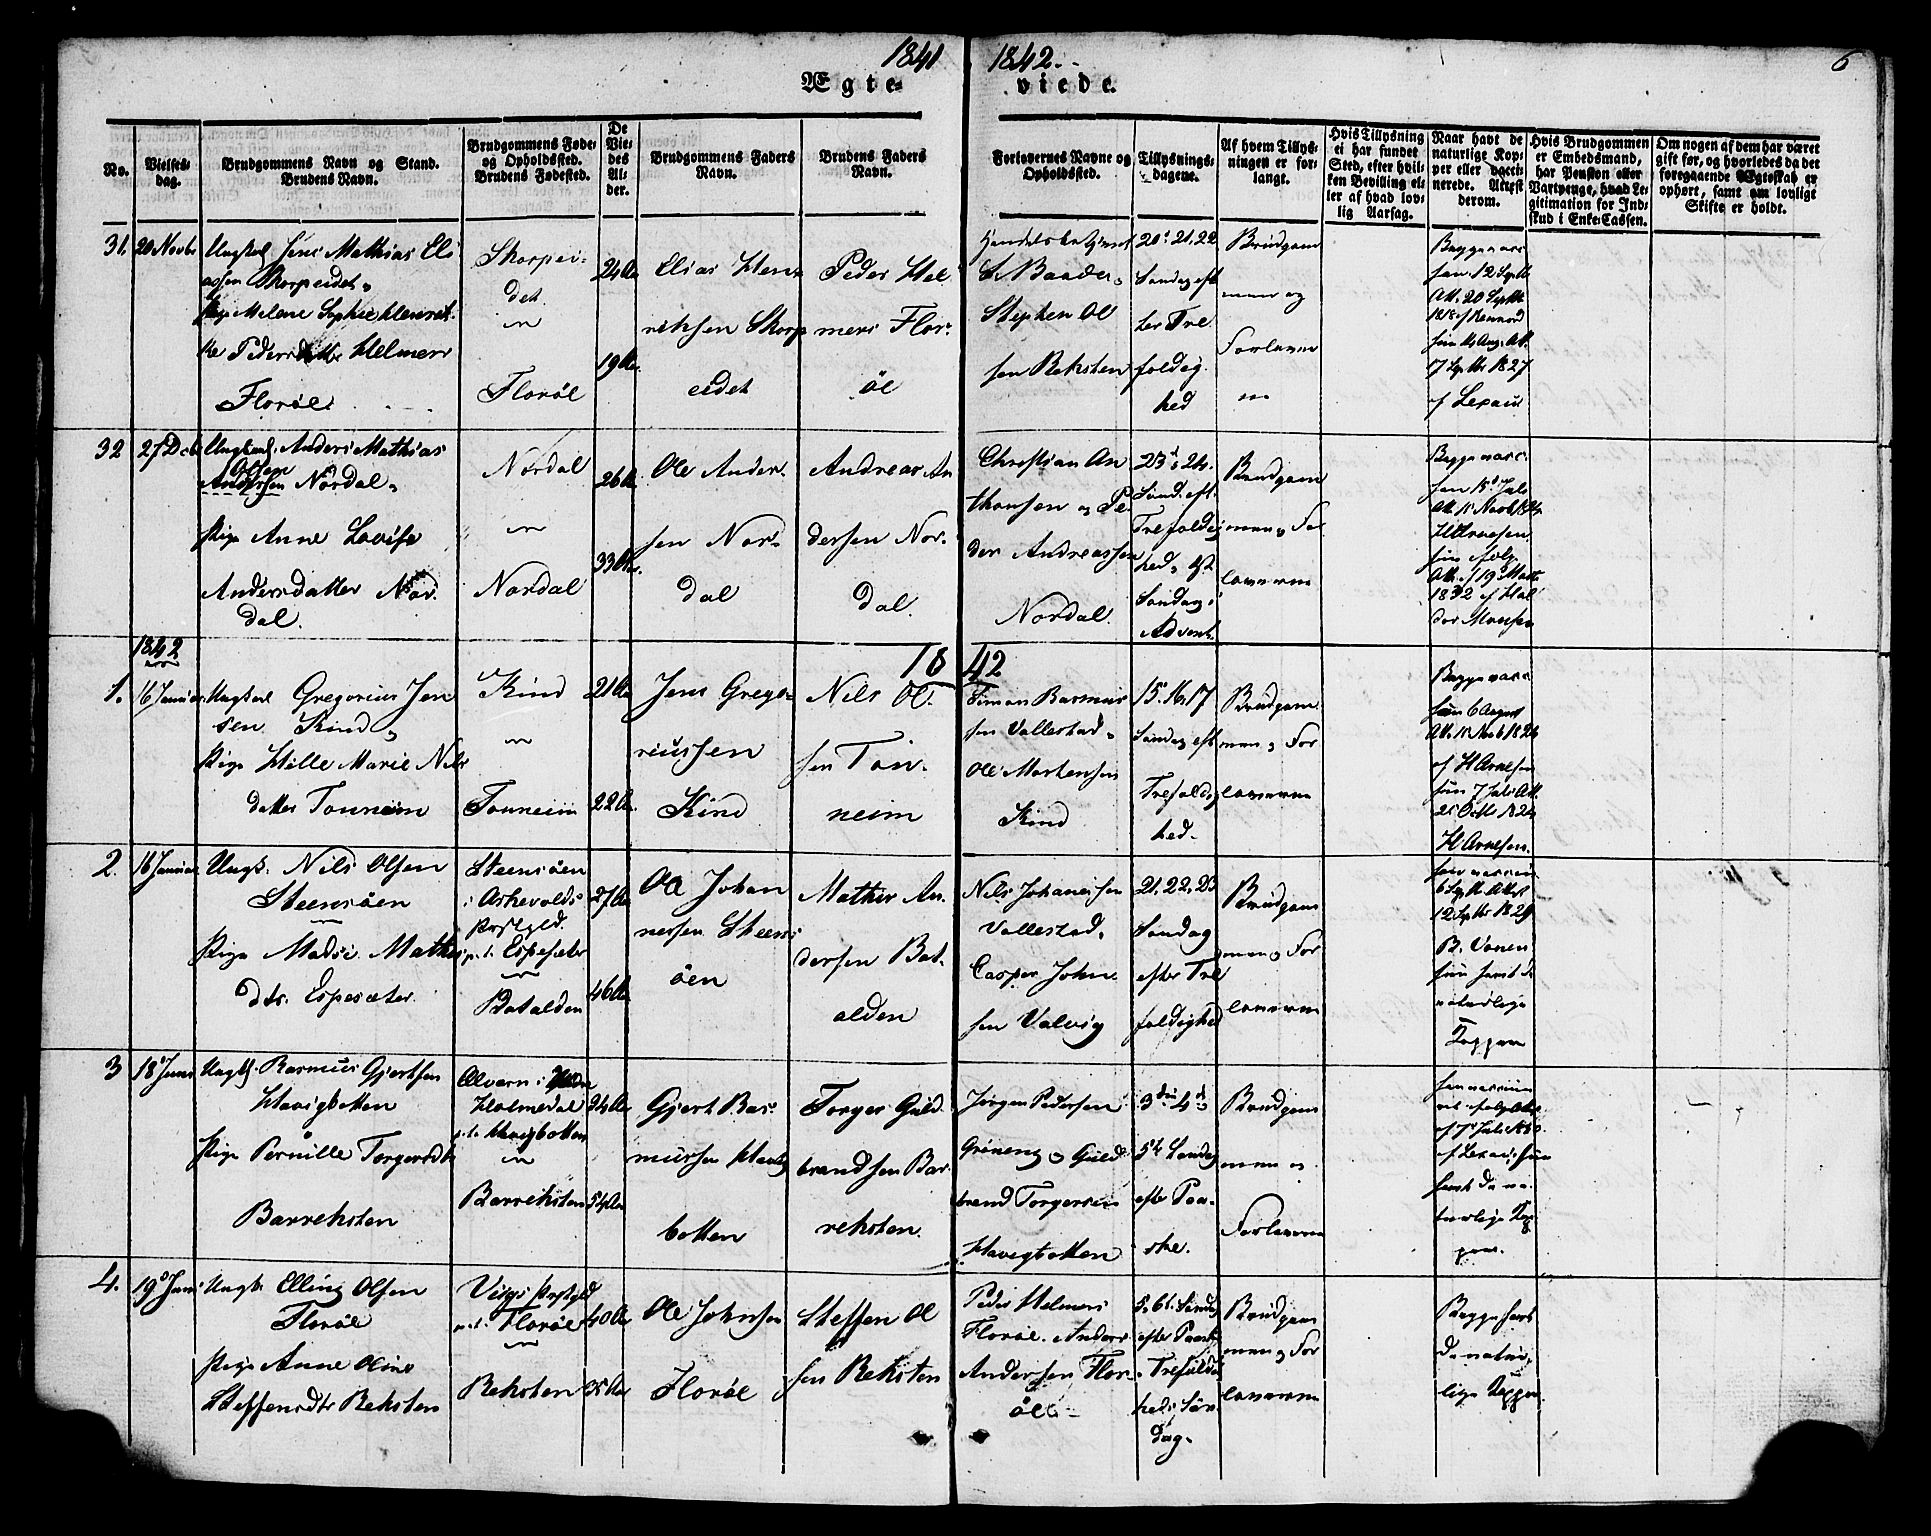 1841
1842.
6
Ægte-
viede.
No.
Vielses-
dag.
Brudgommens Navn og Stand.
Brudens Navn.
Brudgommens Føde-
og Opholdssted.
Brudens Fødested.
De
Vie-
des
Al-
der.
Brudgommens Faders
Navn.
Brudens Faders
Navn.
Forlovernes Navne og
Opholdssted.
Tillysnings-
dagene.
Af hvem Tillys-
ningen er for-
langt.
Hvis Tillysning
ei har fundet
Sted, efter hvil-
ken Bevilling el-
ler af hvad lov-
lig Aarsag.
Naar havt de
naturlige Kop-
per eller vacci-
nerede. Attest
derom.
Hvis Brudgommen
er Embedsmand,
har Pension eller
Vartpenge, hvad Le-
gitimation for Ind-
skud i Enke-Cassen.
Om nogen af dem har været
gift før, og hvorledes da det
foregaaende Ægteskab er
ophørt, samt om lovligt
Skifte er holdt.
31.
20 Novbr
Ungkel Jens Mathias Eli
assen Skorpeidet
Pige Melene Sophie
Pedersdatter Helmers
Florøl.
Skorpei-
det
Florøl
24 Aar
19 Aar.
Elias Hen-
richsen Skorp
eidet
Peder Hel
mers Flor-
øl
S. Baader
Stephen Ol
sen Reksten
20. 21. 22
Søndag eft
ter Tre
foldig
hed
Brudgom
men og
Forlovern
Begge vacc
12 Septb
Att. 20 Septbr
17 Septbr 1827
32
27 Dcbr
Ungkarl. Anders Mathias
Olsen
Andersen Nordal
Pige Anne Lovise
Andersdatter Nor-
dal.
Nordal
Nordal
26 A
33 Aar.
Ole Ander-
sen Nor-
dal
Andreas An
dersen Nor-
dal.
Christian An
thonsen og Pe-
der Andreassen
Nordal.
23d 24.
Sønd. eft.
Trefoldig
hed
Søndag i
Advent
Brudgom
men og For
loverne
Begge vacc.
1832 af Hal
dor Monsen
1842
18
42
1.
16 Januar
Ungkarl Gregorius Jen
sen Kind
Pige Hille Marie Nils
datter Tonneim
Kind
Tonneim
21 Aar
22 Aar
Jens Grego-
riussen
Kind
Nils Ol-
sen Ton-
neim
Simon Rasmus
sen Vallestad
Ole Mortensen
Kind
15. 16. 17
Søndag eft
Trefoldig
hed.
Brudgom
men og For
loverne
Begge vacc
6 August
af H Arnesen
7 Juli Att.
H Arnesen.
2.
16 Januar
Ungk. Nils Olsen
Steensøen
Pige Madsi Mathis
dtr. Espesæter.
Steensøen
i Askevolds
Prstgld.
p. t. Espesæter
Batalden
27 Aar
46 Aar
Ole Johan
nessen Steens
øen
Mathis An-
dersen Bat-
alden
Nils Johannesen
Vallestad.
Casper John
sen Valvig
21. 22. 23
Søndag
efter Tre
foldighed
Brudgom
men og For
loverne
12 Septbr 1829
B. Vonen
naturlige
Kopper
3
18 Juni
Ungk. Rasmus Gjertsen
Havigbotten
Pige Pernille Torgersdtr
Barreksten
Holmedal
p. t. Havigbotten
Barreksten
24 Aar
54 Aar
Gjert Ras-
mussen Havig
botten
Torger Guld-
brandsen Bar-
reksten.
Jørgen Pedersen
Grøneng og Guld
brand Torgersen
Havigbotten
3die 4d
5te Søndag
efter Paa-
ske.
Brudgom
men og
Forloverne
naturlige Kop
per.
4.
19 Juni
Ungk. Elling Olsen
Florøl
Pige Anne Oline
Steffensdtr Reksten
Prstgld
p. t. Florøl
Reksten
40 Aar
35 Aar
Ole Johnsen
Florøl
Steffen Ol
sen Reksten
Peder Helmers
Florøl. Anders
Andersen Flor-
øl
5. 6t. Søndag
efter Paaske
Trefoldig
heds Søn
dag.
Brudgom
men og For
loverne
Begge havt
de natur-
lige Kopper.